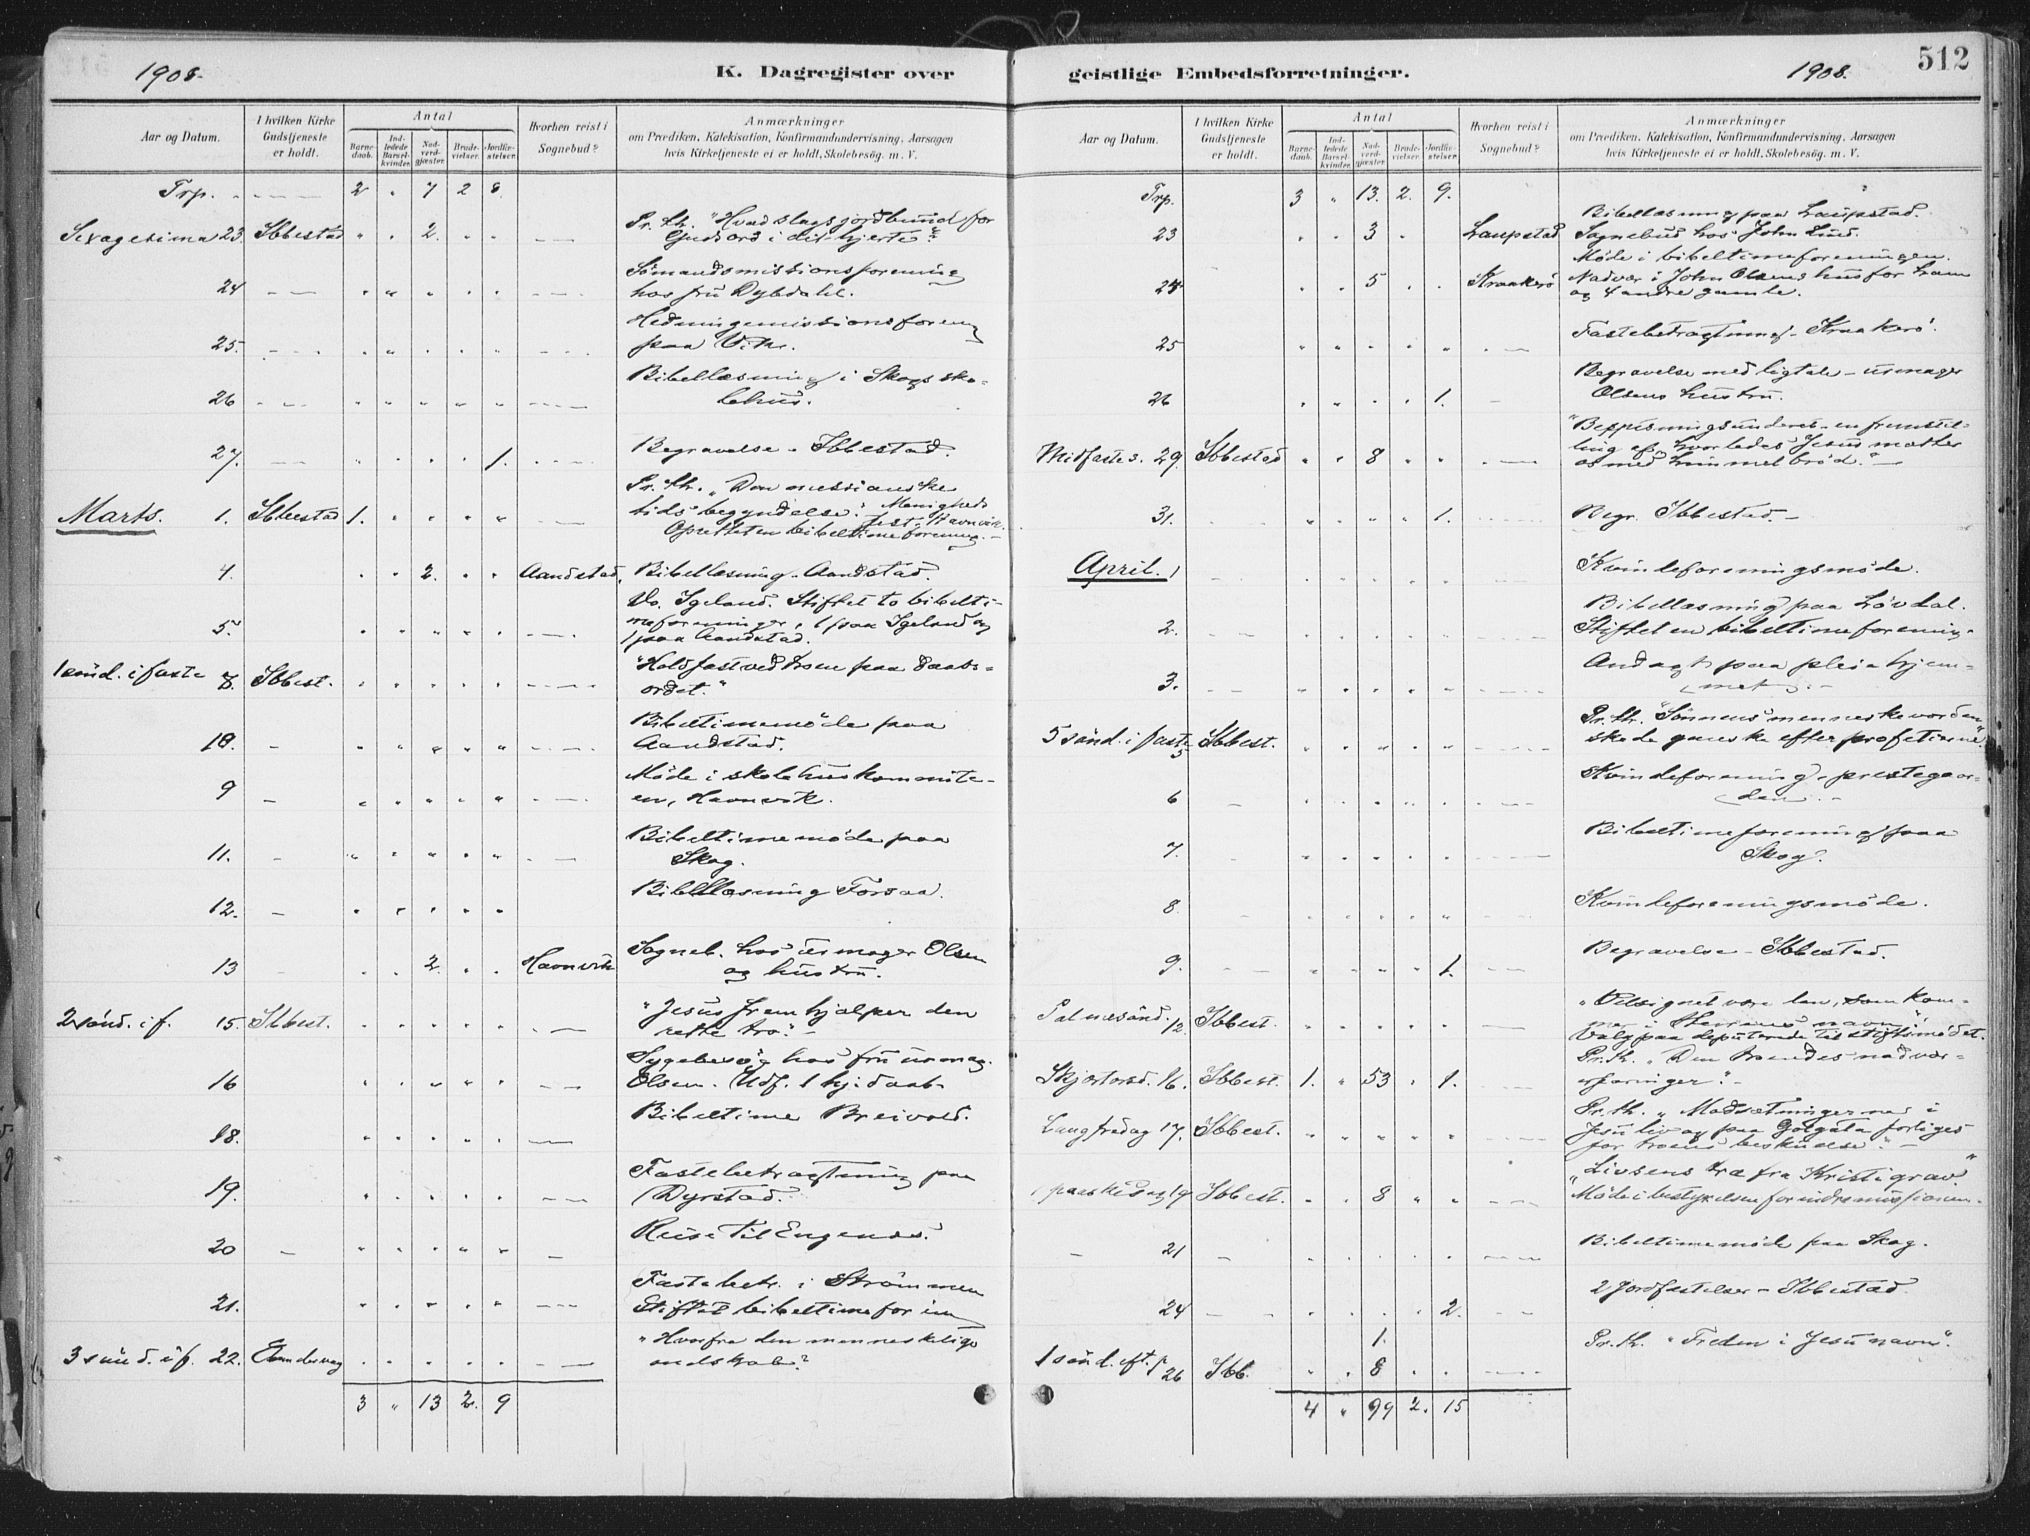 1908.
K. Dagregister over
Aar og Datum.
I hvilken Kirke Gudstjeneste er holdt.
Antal
Barnedaab.
Indledede Barselkvinder.
Nadverdgjæster.
Brudevielser.
Jordfæstelser.
Hvorhen reist i Sognebud?
Anmærkninger
om Prædiken, Katekisation, Konfirmandundervisning, Aarsagen
hvis Kirketjeneste ei er holdt, Skolebesøg. m. V.
Trp. 2 " 7 2 8
Sexagesima 23. Ibbestad " " 2. Pr. th. "Hvad slags jordbund for
Guds ord i dit hjerte?"
24 Sømandsmissionsforening
hos fru Dybdahl.
25. Hedningemissionsforening
paa Vik.
26 Bibellæsning i Skogs sko-
lehus.
27. 1. Begravelse - Ibbestad.
Marts. 1. Ibbestad 1. Pr. th. "Den messianske
tids begyndelse". Menigheds
fest, Havnvik.
Oprettet en bibeltimeforening.
4. 2. Aandstad. Bibellæsning - Aandstad.
5. Do. Igeland. Stiftet to bibelti-
meforeninger, 1 paa Igeland og
1 paa Aandstad.
1 sønd. i faste 8. Ibbest. "Hold fast ved troen paa daabs-
ordet."
18. Bibeltimemøde paa
Aandstad.
9 Møde i skolehuskommite-
en, Havnvik.
11. Bibeltimemøde paa
Skog.
12. Bibellæsning Forsaa.
13 2. Havnvik Sogneb. hos urmager Olsen
og hustru.
2 sønd. i f. 15. Ibbest. "Jesus fremhjælper den
rette tro" -
16 Sygebesøg hos fru urmag.
Olsen. Udf. 1 hj.daab -
18. Bibeltime Breivold.
19. Fastebetragtning paa
Dyrstad.
20 Reise til Engenes.
21. Fastebetr. i Strømmen
Stiftet bibeltimeforening
3 sønd. i f. 22. "Hvorfra den menneskelige
ondskab?"
3 " 13 2. 9
geistlige Embedsforretninger.
1908.
512
Aar og Datum.
I hvilken Kirke Gudstjeneste er holdt.
Antal
Barnedaab.
Indledede Barselkvinder.
Nadverdgjæster.
Brudevielser.
Jordfæstelser.
Hvorhen reist i Sognebud?
Anmærkninger
om Prædiken, Katekisation, Konfirmandundervisning, Aarsagen
hvis Kirketjeneste ei er holdt, Skolebesøg. m. V.
Trp. 3 " 13. 2. 9.
23 3 Laupstad Bibellæsning paa Laupstad.
Sognebud hos John Lind.
24 5 Kraakerø Møde i bibeltimeforeningen.
Nadver i John Olsens hus for ham
og 4 andre gamle.
25 Fastebetragtning - Kraakerø.
26 1. Begravelse med ligtale - urmager
Olsens hustru.
Midfastes. 29. Ibbestad 8 "Bespisningsunderet - en fremstil-
ling af hvorledes Jesus mætter
os med himmelbrød." -
31. 1. Begr. Ibbestad. -
April. 1 Kvindeforeningsmøde.
2. Bibellæsning paa Løvdal.
Stiftet en bibeltimeforening.
3. Andagt paa pleiehjem-
met. -
5 sønd. i faste 5 Ibbest. Pr. th. "Sønnens menneskevorden
skede ganske efter profetierne".
6 Kvindeforening, prestegaar-
den. -
7. Bibeltimeforening paa
Skog.
8. Kvindeforeningsmøde.
9. 1. Begravelse - Ibbestad.
Palmesønd. 12. Ibbest. "Velsignet være han, som kom-
mer i Herrens navn".
Valg paa deputerede til stiftsmødet.
Skjærtorsd. 16. Ibbest. 1. " 53 " 1. Pr. th. "Den troendes nadver-
erfaringer". -
Langfredag 17. Ibbest. Pr. th. "Modsætningerne i
Jesu liv og paa Golgata forliges
for troens beskuelse". -
1 paaskedag 19 Ibbest. 8 "Livsens træ fra Kristi grav."
"Møde i bestyrelsen for indremissionen.
21 Bibeltimemøde paa Skog.
24 2. 2 Jordfæstelser - Ibbestad.
1.
1 sønd. eft. p. 26 Ibb. 8 Pr. th. "Freden i Jesu navn".
4 " 99 2. 15